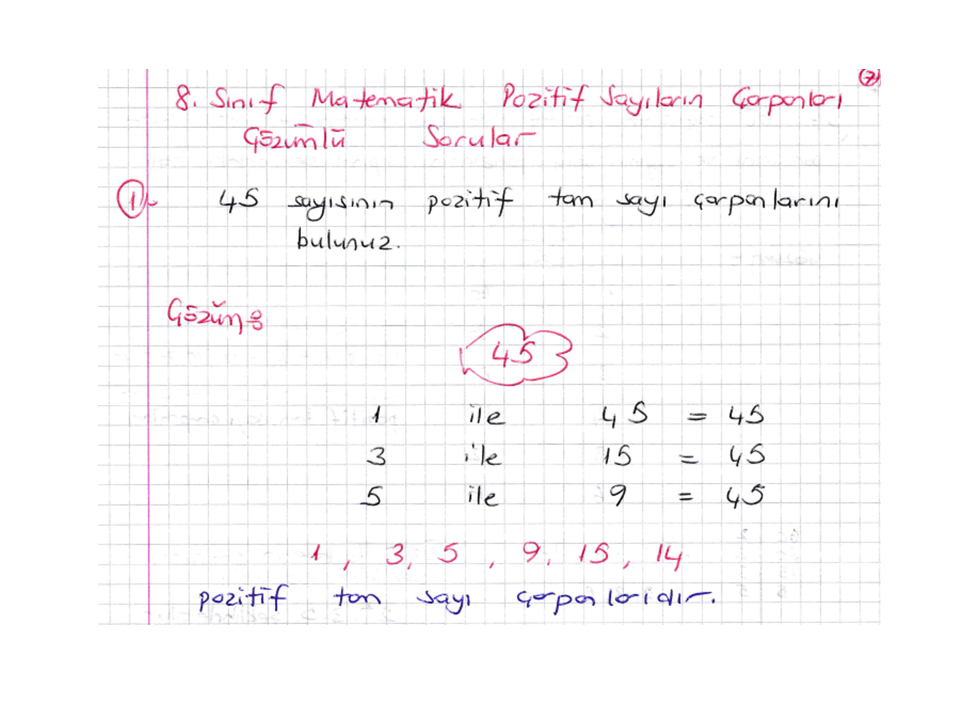 2
8. Sınıf Matematik Pozitif Sayıların Çarpanları
Çözümlü Sorular
1 45 sayısının pozitif tam sayı çarpanlarını
bulunuz.
Çözüm:
45
1 ile 45 = 45
3 ile 15 = 45
5 ile 9 = 45
1, 3, 5, 9, 15, 14
pozitif tam sayı çarpanlarıdır.